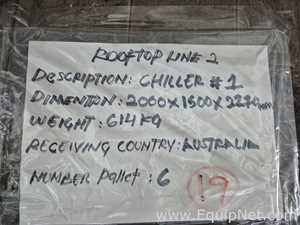 ROOFTOP LINE 2
DESCRIPTION: CHILLER #1
DIMENTION: 2000X1500X2270mm
WEIGHT: 614KG
RECEIVING COUNTRY: AUSTRALIA
NUMBER Pallet: 6
19
www.EquipNet.com